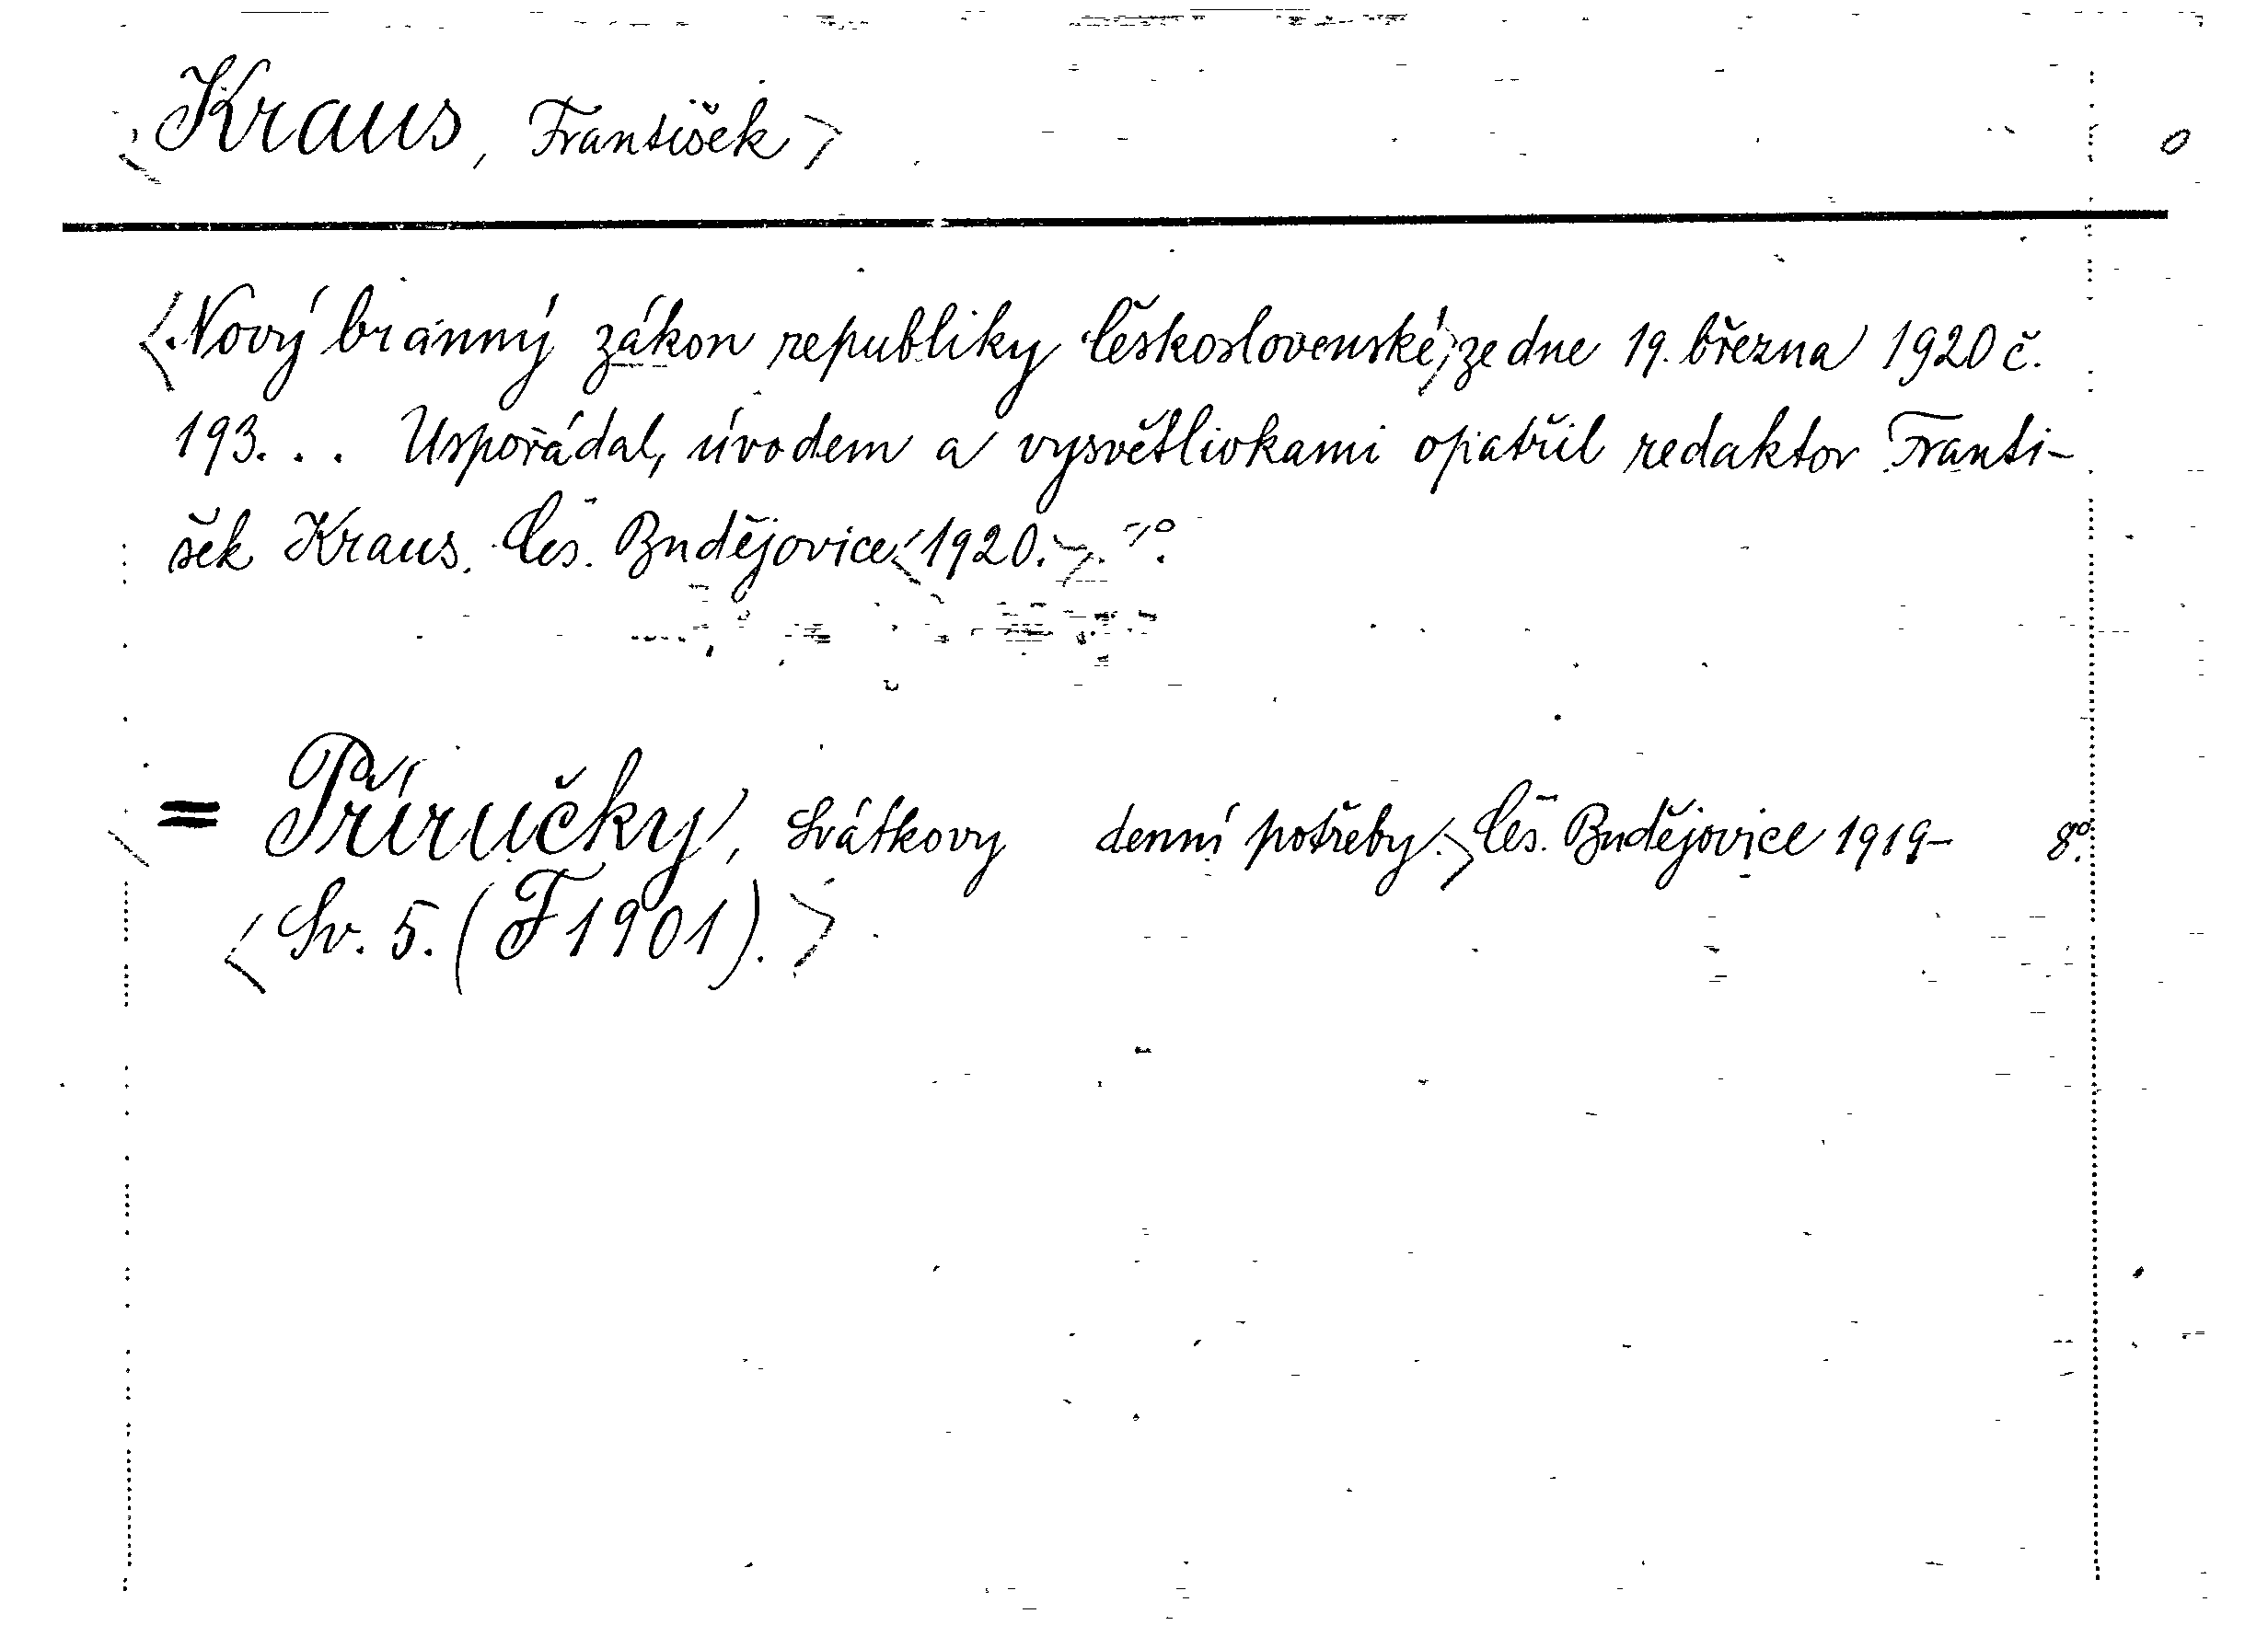 <Kraus, František> 0
<Nový branný zákon republiky Československé,> ze dne 19. března 1920 č.
193... Uspořádal, úvodem a vysvětlivkami opatřil redaktor Franti-
šek Kraus. Čes. Budějovice <1920.>.
= Příručky, Svátkovy denní potřeby.> Čes. Budějovice 1919- 8º.
<Sv. 5. (F 1901).>